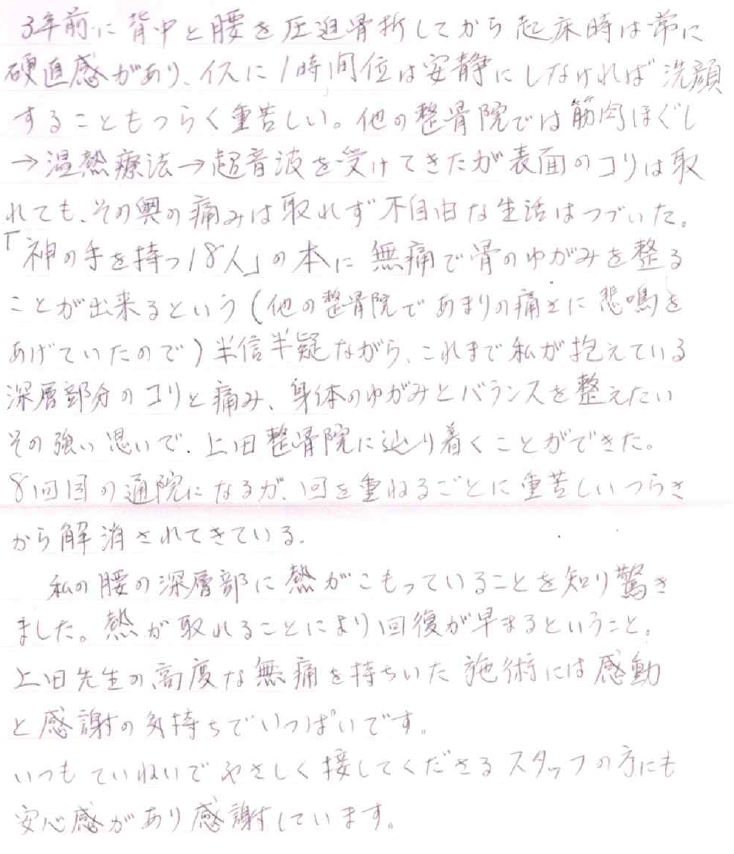 3年前に背中と腰を圧迫骨折してから起床時は常に
硬直感があり、イスに1時間位は安静にしなければ洗顔
することもつらく重苦しい。他の整骨院では筋肉ほぐし
→温熱療法→超音波を受けてきたが表面のコリは取
れても、その奥の痛みは取れず不自由な生活はつづいた。
「神の手を持つ18人」の本に無痛で骨のゆがみを整る
ことが出来るという(他の整骨院であまりの痛さに悲鳴を
あげていたので)半信半疑ながら、これまで私が抱えている
深層部分のコリと痛み、身体のゆがみとバランスを整えたい
その強い思いで、上田整骨院に辿り着くことができた。
8回目の通院になるが、回を重ねるごとに重苦しいつらさ
から解消されてきている。
私の腰の深層部に熱がこもっていることを知り驚き
ました。熱が取れることにより回復が早まるということ。
上田先生の高度な無痛を持ちいた施術には感動
と感謝の気持ちでいっぱいです。
いつもていねいでやさしく接してくださるスタッフの方にも
安心感があり感謝しています。